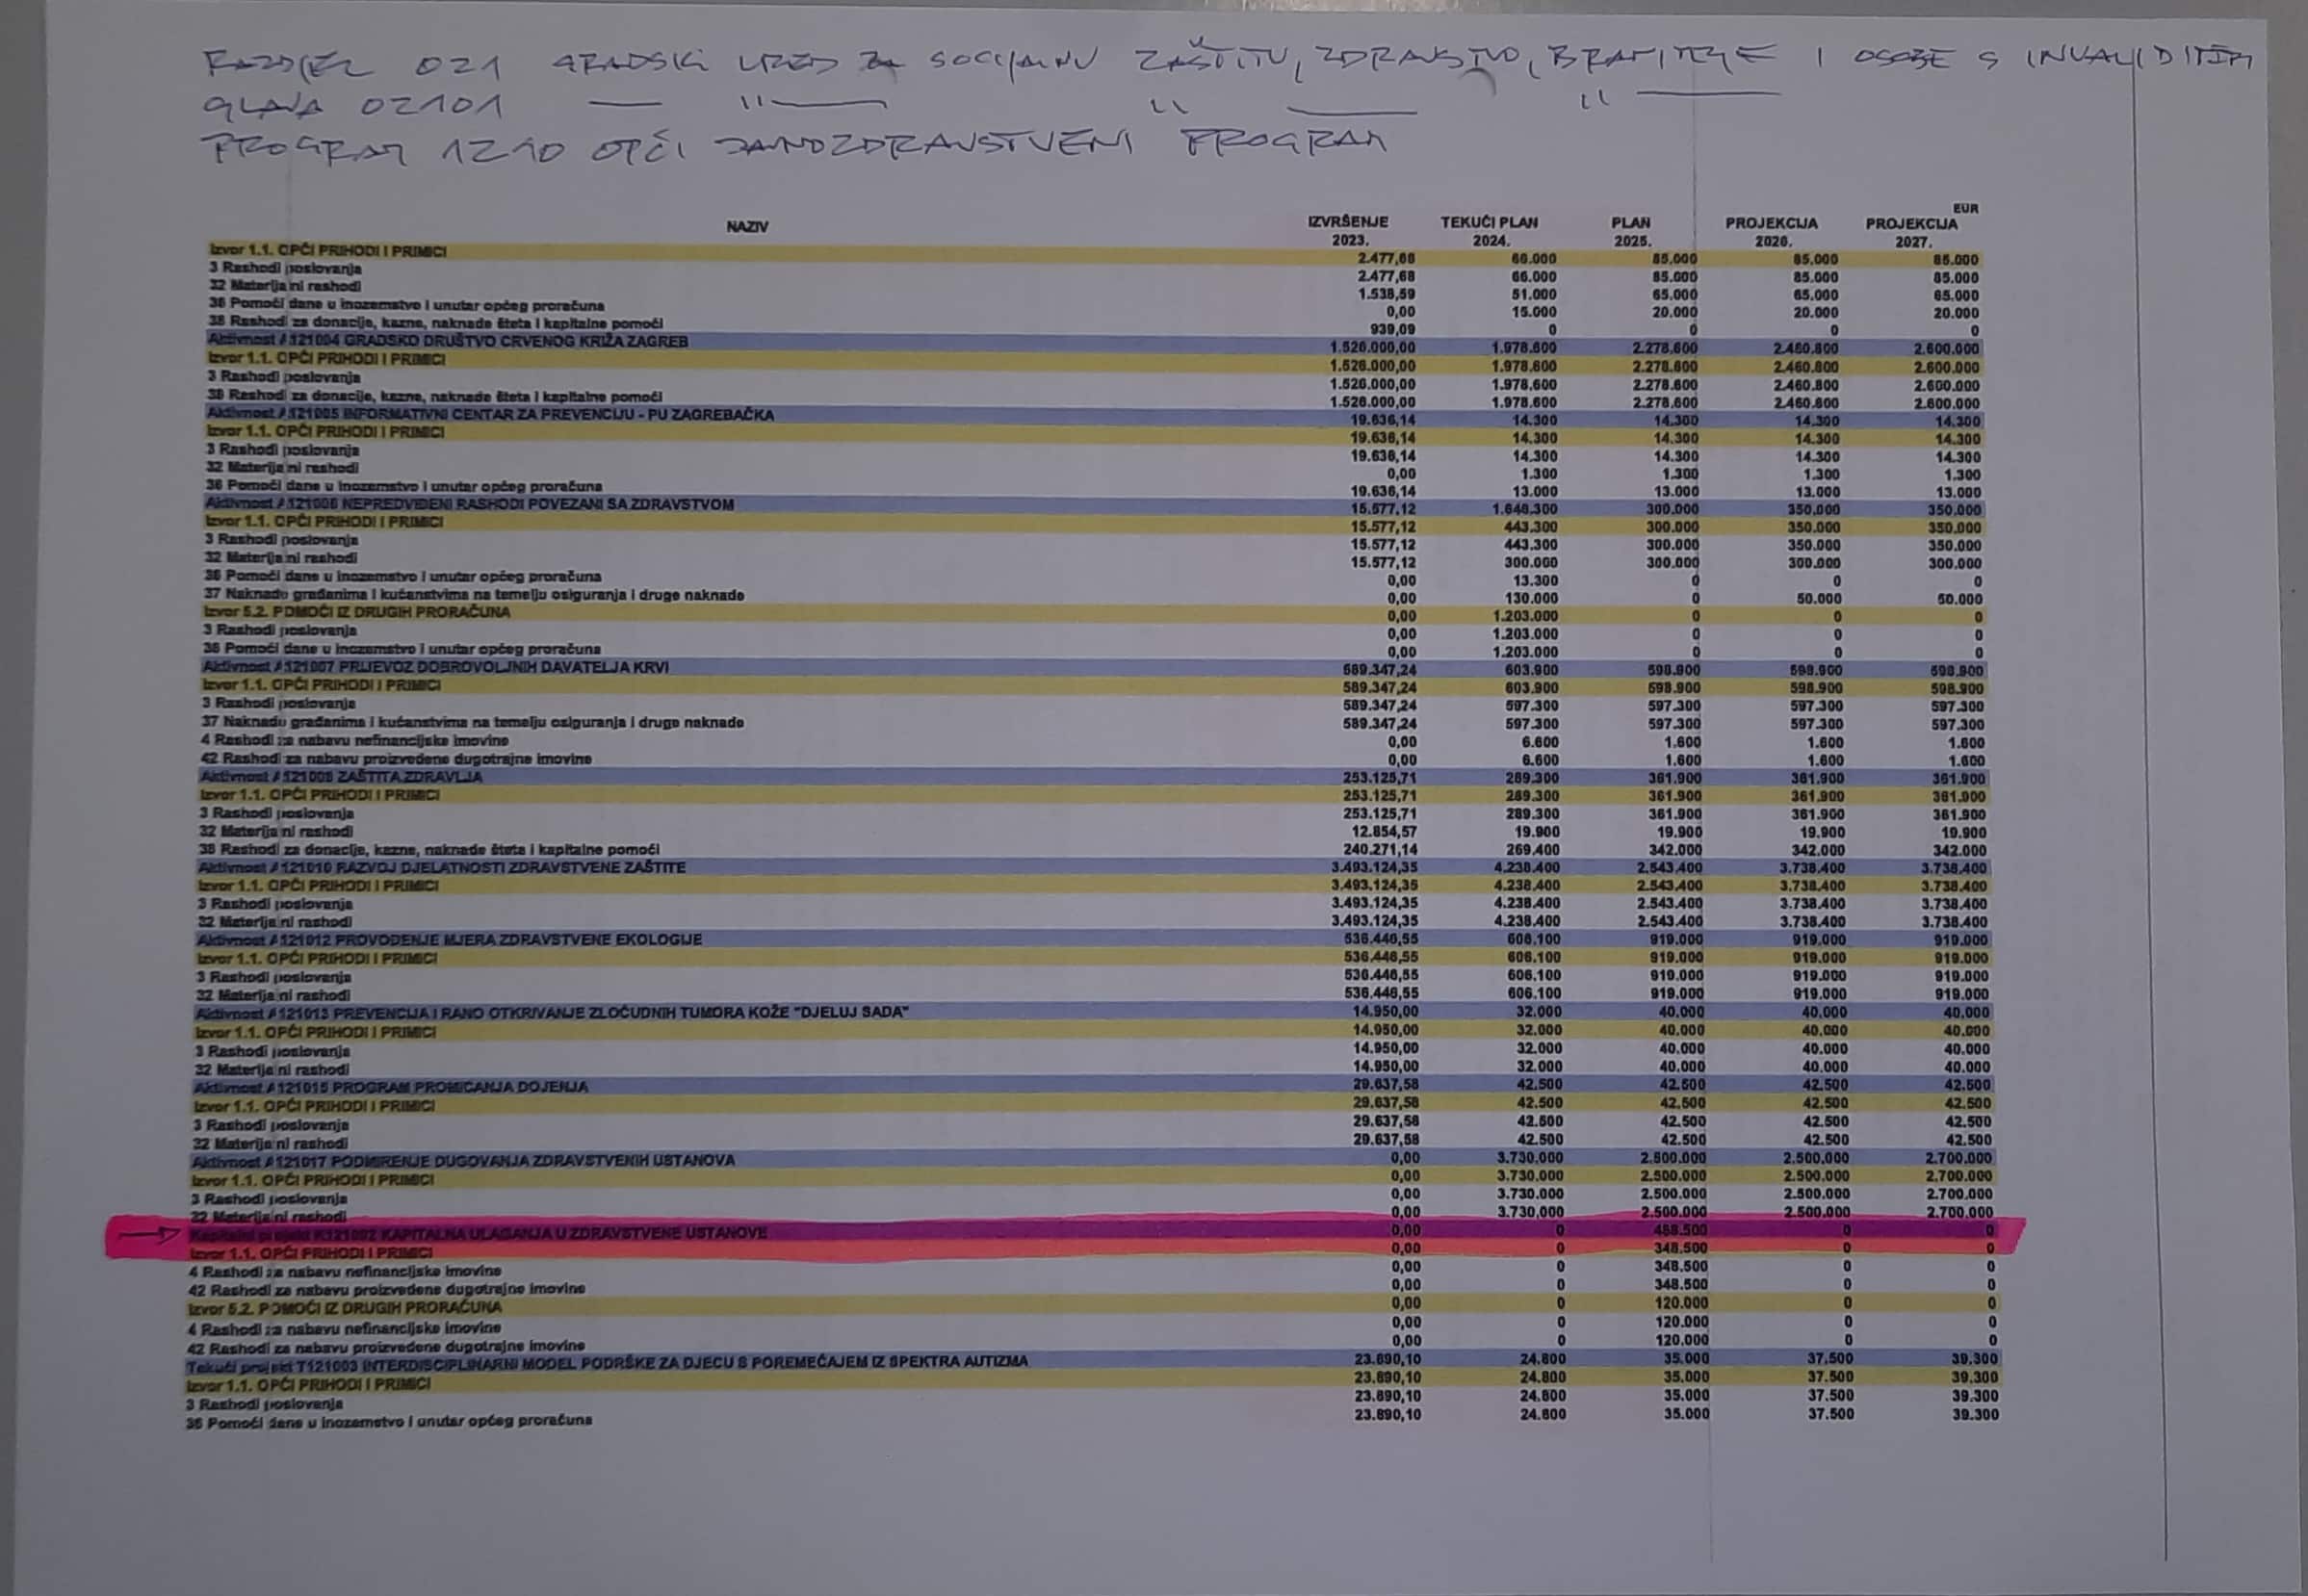 RAZDJEL 021 GRADSKI URED ZA SOCIJALNU ZAŠTITU, ZDRAVSTVO, BRANITELJE I OSOBE S INVALIDITETOM
GLAVA 02101 — " — " — " —
PROGRAM 1210 OPĆI JAVNOZDRAVSTVENI PROGRAM
EUR
NAZIV IZVRŠENJE 2023. TEKUĆI PLAN 2024. PLAN 2025. PROJEKCIJA 2026. PROJEKCIJA 2027.
Izvor 1.1. OPĆI PRIHODI I PRIMICI 2.477,68 66.000 85.000 85.000 85.000
3 Rashodi poslovanja 2.477,68 66.000 85.000 85.000 85.000
32 Materijalni rashodi 1.538,59 51.000 65.000 65.000 65.000
36 Pomoći dane u inozemstvo i unutar općeg proračuna 0,00 15.000 20.000 20.000 20.000
38 Rashodi za donacije, kazne, naknade šteta i kapitalne pomoći 939,09 0 0 0 0
Aktivnost A121004 GRADSKO DRUŠTVO CRVENOG KRIŽA ZAGREB 1.526.000,00 1.978.600 2.278.600 2.460.800 2.600.000
Izvor 1.1. OPĆI PRIHODI I PRIMICI 1.526.000,00 1.978.600 2.278.600 2.460.800 2.600.000
3 Rashodi poslovanja 1.526.000,00 1.978.600 2.278.600 2.460.800 2.600.000
38 Rashodi za donacije, kazne, naknade šteta i kapitalne pomoći 1.526.000,00 1.978.600 2.278.600 2.460.800 2.600.000
Aktivnost A121005 INFORMATIVNI CENTAR ZA PREVENCIJU - PU ZAGREBAČKA 19.636,14 14.300 14.300 14.300 14.300
Izvor 1.1. OPĆI PRIHODI I PRIMICI 19.636,14 14.300 14.300 14.300 14.300
3 Rashodi poslovanja 19.636,14 14.300 14.300 14.300 14.300
32 Materijalni rashodi 0,00 1.300 1.300 1.300 1.300
36 Pomoći dane u inozemstvo i unutar općeg proračuna 19.636,14 13.000 13.000 13.000 13.000
Aktivnost A121006 NEPREDVIĐENI RASHODI POVEZANI SA ZDRAVSTVOM 15.577,12 1.646.300 300.000 350.000 350.000
Izvor 1.1. OPĆI PRIHODI I PRIMICI 15.577,12 443.300 300.000 350.000 350.000
3 Rashodi poslovanja 15.577,12 443.300 300.000 350.000 350.000
32 Materijalni rashodi 15.577,12 300.000 300.000 300.000 300.000
36 Pomoći dane u inozemstvo i unutar općeg proračuna 0,00 13.300 0 0 0
37 Naknade građanima i kućanstvima na temelju osiguranja i druge naknade 0,00 130.000 0 50.000 50.000
Izvor 5.2. POMOĆI IZ DRUGIH PRORAČUNA 0,00 1.203.000 0 0 0
3 Rashodi poslovanja 0,00 1.203.000 0 0 0
36 Pomoći dane u inozemstvo i unutar općeg proračuna 0,00 1.203.000 0 0 0
Aktivnost A121007 PRIJEVOZ DOBROVOLJNIH DAVATELJA KRVI 589.347,24 603.900 598.900 598.900 598.900
Izvor 1.1. OPĆI PRIHODI I PRIMICI 589.347,24 603.900 598.900 598.900 598.900
3 Rashodi poslovanja 589.347,24 597.300 597.300 597.300 597.300
37 Naknade građanima i kućanstvima na temelju osiguranja i druge naknade 589.347,24 597.300 597.300 597.300 597.300
4 Rashodi za nabavu nefinancijske imovine 0,00 6.600 1.600 1.600 1.600
42 Rashodi za nabavu proizvedene dugotrajne imovine 0,00 6.600 1.600 1.600 1.600
Aktivnost A121008 ZAŠTITA ZDRAVLJA 253.125,71 289.300 361.900 361.900 361.900
Izvor 1.1. OPĆI PRIHODI I PRIMICI 253.125,71 289.300 361.900 361.900 361.900
3 Rashodi poslovanja 253.125,71 289.300 361.900 361.900 361.900
32 Materijalni rashodi 12.854,57 19.900 19.900 19.900 19.900
38 Rashodi za donacije, kazne, naknade šteta i kapitalne pomoći 240.271,14 269.400 342.000 342.000 342.000
Aktivnost A121010 RAZVOJ DJELATNOSTI ZDRAVSTVENE ZAŠTITE 3.493.124,35 4.238.400 2.543.400 3.738.400 3.738.400
Izvor 1.1. OPĆI PRIHODI I PRIMICI 3.493.124,35 4.238.400 2.543.400 3.738.400 3.738.400
3 Rashodi poslovanja 3.493.124,35 4.238.400 2.543.400 3.738.400 3.738.400
32 Materijalni rashodi 3.493.124,35 4.238.400 2.543.400 3.738.400 3.738.400
Aktivnost A121012 PROVOĐENJE MJERA ZDRAVSTVENE EKOLOGIJE 536.446,55 606.100 919.000 919.000 919.000
Izvor 1.1. OPĆI PRIHODI I PRIMICI 536.446,55 606.100 919.000 919.000 919.000
3 Rashodi poslovanja 536.446,55 606.100 919.000 919.000 919.000
32 Materijalni rashodi 536.446,55 606.100 919.000 919.000 919.000
Aktivnost A121013 PREVENCIJA I RANO OTKRIVANJE ZLOĆUDNIH TUMORA KOŽE "DJELUJ SADA" 14.950,00 32.000 40.000 40.000 40.000
Izvor 1.1. OPĆI PRIHODI I PRIMICI 14.950,00 32.000 40.000 40.000 40.000
3 Rashodi poslovanja 14.950,00 32.000 40.000 40.000 40.000
32 Materijalni rashodi 14.950,00 32.000 40.000 40.000 40.000
Aktivnost A121015 PROGRAM PROMICANJA DOJENJA 29.637,58 42.500 42.500 42.500 42.500
Izvor 1.1. OPĆI PRIHODI I PRIMICI 29.637,58 42.500 42.500 42.500 42.500
3 Rashodi poslovanja 29.637,58 42.500 42.500 42.500 42.500
32 Materijalni rashodi 29.637,58 42.500 42.500 42.500 42.500
Aktivnost A121017 PODMIRENJE DUGOVANJA ZDRAVSTVENIH USTANOVA 0,00 3.730.000 2.500.000 2.500.000 2.700.000
Izvor 1.1. OPĆI PRIHODI I PRIMICI 0,00 3.730.000 2.500.000 2.500.000 2.700.000
3 Rashodi poslovanja 0,00 3.730.000 2.500.000 2.500.000 2.700.000
32 Materijalni rashodi 0,00 3.730.000 2.500.000 2.500.000 2.700.000
Kapitalni projekt K121002 KAPITALNA ULAGANJA U ZDRAVSTVENE USTANOVE 0,00 0 468.500 0 0
Izvor 1.1. OPĆI PRIHODI I PRIMICI 0,00 0 348.500 0 0
4 Rashodi za nabavu nefinancijske imovine 0,00 0 348.500 0 0
42 Rashodi za nabavu proizvedene dugotrajne imovine 0,00 0 348.500 0 0
Izvor 5.2. POMOĆI IZ DRUGIH PRORAČUNA 0,00 0 120.000 0 0
4 Rashodi za nabavu nefinancijske imovine 0,00 0 120.000 0 0
42 Rashodi za nabavu proizvedene dugotrajne imovine 0,00 0 120.000 0 0
Tekući projekt T121003 INTERDISCIPLINARNI MODEL PODRŠKE ZA DJECU S POREMEĆAJEM IZ SPEKTRA AUTIZMA 23.890,10 24.800 35.000 37.500 39.300
Izvor 1.1. OPĆI PRIHODI I PRIMICI 23.890,10 24.800 35.000 37.500 39.300
3 Rashodi poslovanja 23.890,10 24.800 35.000 37.500 39.300
36 Pomoći dane u inozemstvo i unutar općeg proračuna 23.890,10 24.800 35.000 37.500 39.300